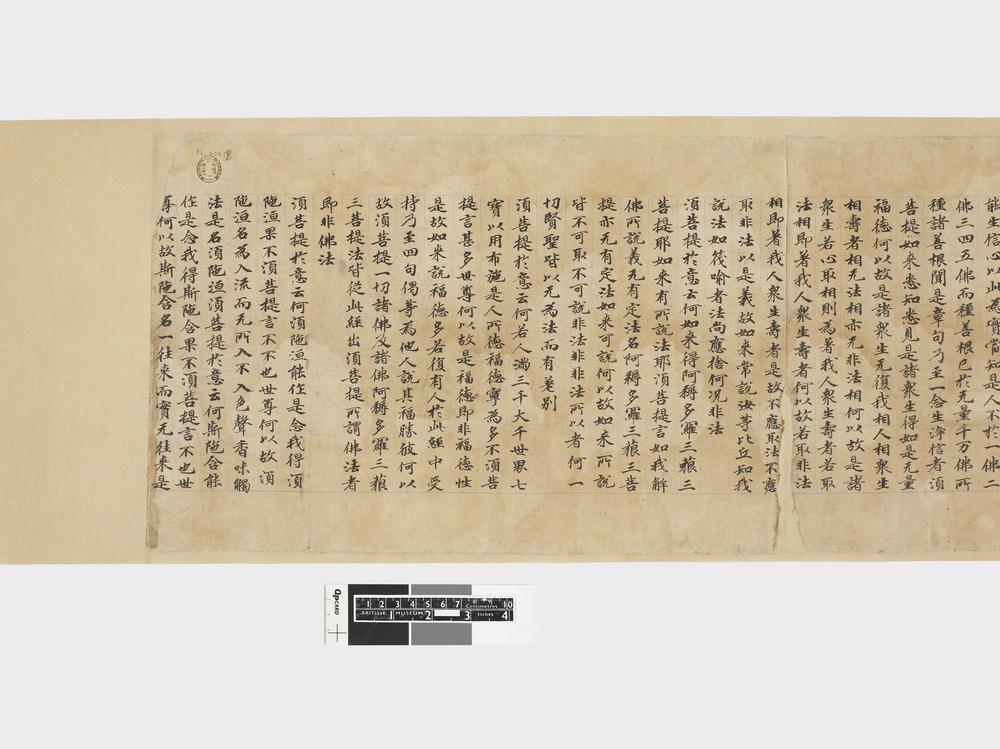 能生信心以此為實當知是人不於一佛二
佛三四五佛而種善根已於无量千万佛所
種諸善根聞是章句乃至一念生淨信者須
菩提如來悉知悉見是諸衆生得如是无量
福德何以故是諸衆生无復我相人相衆生
相壽者相无法相亦无非法相何以故是諸
衆生若心取相則為著我人衆生壽者若取
法相即著我人衆生壽者何以故若取非法
相即著我人衆生壽者是故不應取法不應
取非法以是義故如來常說汝等比丘知我
說法如筏喻者法尚應捨何况非法
須菩提於意云何如來得阿耨多羅三藐三
菩提耶如來有所說法耶須菩提言如我解
佛所說義无有定法名阿耨多羅三藐三菩
提亦无有定法如來可說何以故如來所說
法皆不可取不可說非法非非法所以者何一
切賢聖皆以无為法而有差别
須菩提於意云何若人滿三千大千世界七
寶以用布施是人所德福德寧為多不須菩
提言甚多世尊何以故是福德即非福德性
是故如來說福德多若復有人於此經中受
持乃至四句偈等為他人說其福勝彼何以
故須菩提一切諸佛及諸佛阿耨多羅三藐
三菩提法皆從此經出須菩提所謂佛法者
即非佛法
須菩提於意云何須陁洹能作是念我得須
陁洹果不須菩提言不不也世尊何以故須
陁洹名為入流而无所入不入色聲香味觸
法是名須陁洹須菩提於意云何斯陁含能
作是念我得斯陁含果不須菩提言不也世
尊何以故斯陁含名一往來而實无往來是
QPCARD
1 2 3 4 5 6 7 8 10
Centimetres
BRITISH MUSEUM
1 2 3 4
Inches